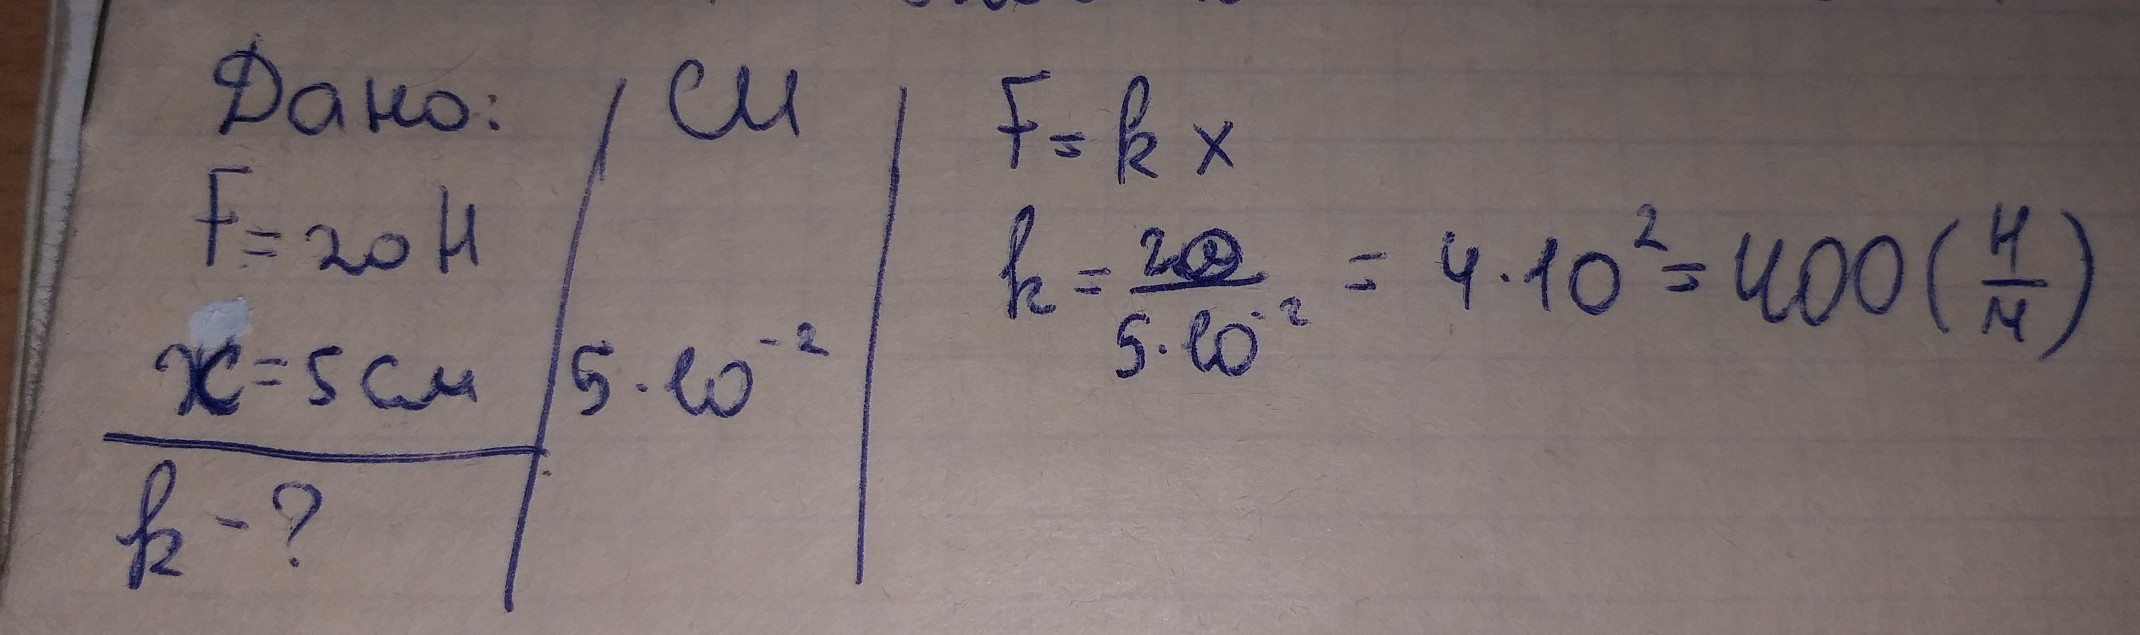 Дано:
F = 20 Н
x = 5 см
k - ?
СИ
5 · 10⁻²
F = k x
k = 20 / 5 · 10⁻² = 4 · 10² = 400 (Н/м)